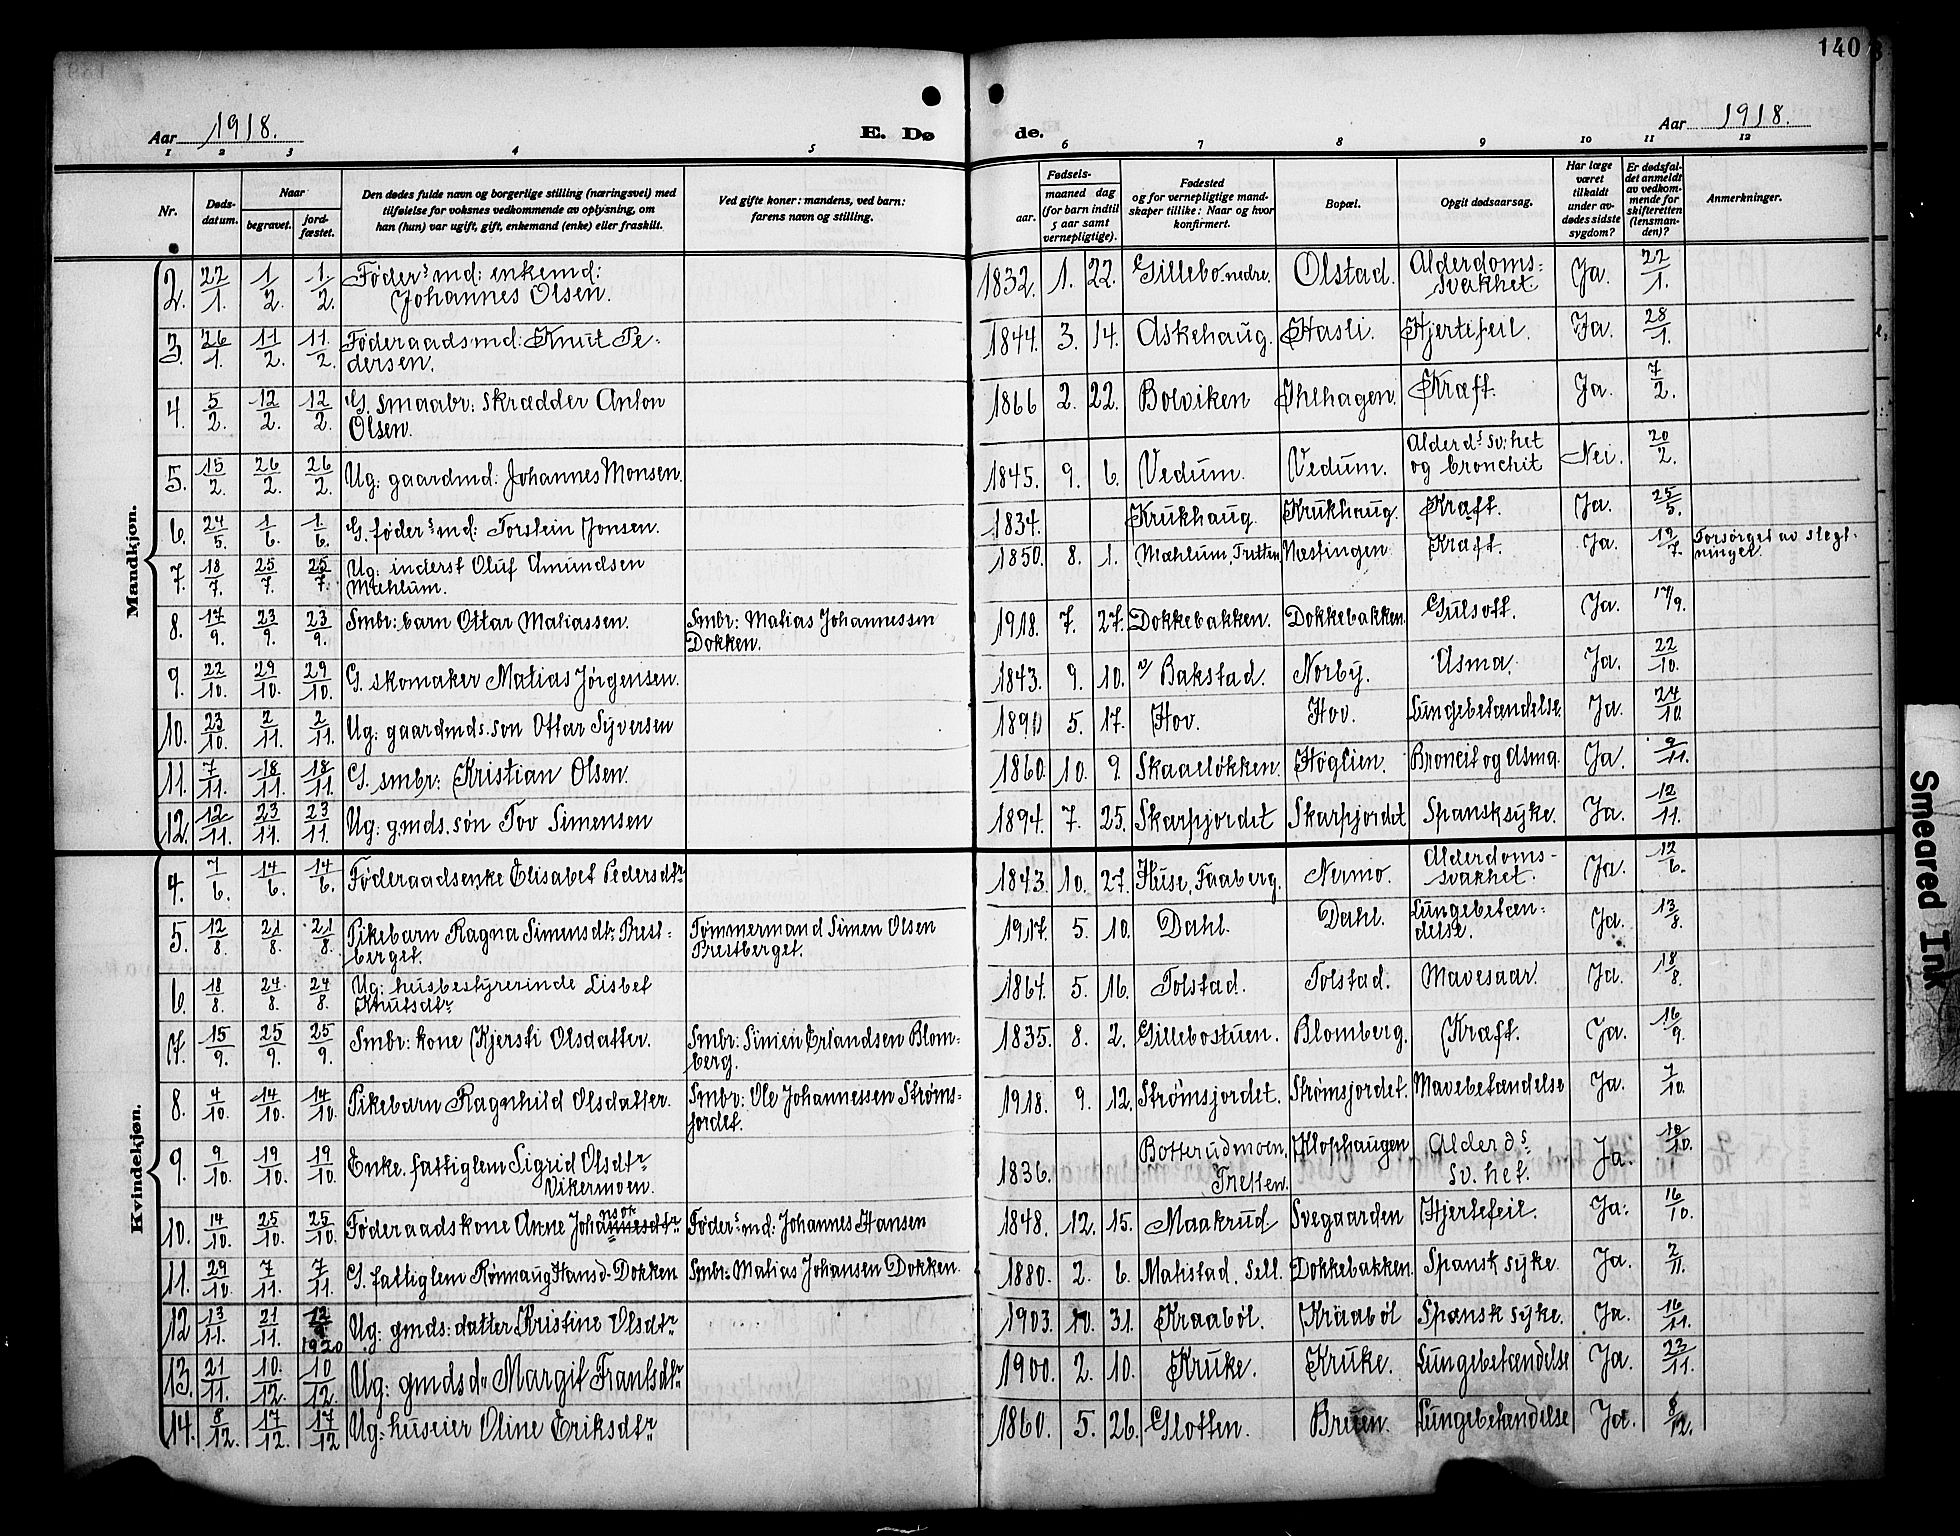 140
Aar 1918. E. Dø de. Aar 1918.
1 2 3 4 5 6 7 8 9 10 11 12
Nr. Døds-datum. Naar begravet. jord-fæstet. Den dødes fulde navn og borgerlige stilling (næringsvei) med tilføielse for voksnes vedkommende av oplysning, om han (hun) var ugift, gift, enkemand (enke) eller fraskilt. Ved gifte koner: mandens, ved barn: farens navn og stilling. Fødsels- aar. maaned dag (for barn indtil 5 aar samt vernepligtige). Fødested og for vernepligtige mand-skaper tillike: Naar og hvor konfirmert. Bopæl. Opgit dødsaarsag. Har læge været tilkaldt under av-dødes sidste sygdom? Er dødsfal-det anmeldt av vedkom-mende for skifteretten (lensman-den)? Anmerkninger.
Mandkjøn.
2. 22/1. 1/2. 1/2. Føder.s md: enkemd: Johannes Olsen. 1832. 1. 22. Gillebo nedre. Olstad. Alderdoms-svakhet Ja. 22/1.
3. 26/1. 11/2. 11/2. Føderaadsmd: Knut Pe-dersen. 1844. 3. 14. Askehaug. Hasli. Hjertefeil. Ja. 28/1.
4. 5/2. 12/2. 12/2. G. smaabr: skrædder Anton Olsen. 1866 2. 22. Bolviken Ihlhagen. Kræft. Ja. 7/2.
5. 15/2. 26/2. 26/2. Ug: gaardmd: Johannes Monsen. 1845. 9. 6. Vedum. Vedum. Alderd.s sv:het og bronchit Nei. 20/2.
6. 24/5. 1/6. 1/6. G. føder.s md: Torstein Jonsen. 1834. Krukhaug. Krukhaug. Kræft. Ja. 25/5.
7. 18/7. 25/7. 25/7. Ug: inderst Oluf Amundsen Mæhlum. 1850. 8. 1. Mæhlum, Tretten Næstingen Kræft. Ja. 19/7. Forsørget av slegt-ninger.
8. 17/9. 23/9. 23/9. Smbr: barn Ottar Matiassen. Smbr: Matias Johannessen Dokken. 1918. 7. 27. Dokkebakken. Dokkebakken. Gulsott. Ja. 17/9.
9. 22/10. 29/10. 29/10. G. skomaker Matias Jørgensen. 1843. 9. 10. v/ Bakstad. Norby. Asma. Ja. 22/10.
10. 23/10. 2/11. 2/11. Ug: gaardmds. søn Ottar Syversen 5. 17. Hov. Hov. Lungebetændelse. Ja. 24/10
11. 7/11. 18/11. 18/11. G. smbr: Kristian Olsen. 1860. 10. 9. Skaaeløkken. Høglien. Broncit og Asma. Ja. 9/11.
12. 12/11. 23/11. 23/11. Ug: gmds. søn Tov Simensen 1894. 7. 25. Skarpjordet Skarpjordet Spansksyke. Ja. 12/11.
Kvindekjøn.
4. 7/6. 14/6. 14/6. Føderaadsenke Elisabet Pedersdtr 1843. 10. 27. Huse, Faaberg. Nermo. Alderdoms-svakhet. Ja. 12/6.
5. 12/8. 21/8. 21/8. Pikebarn Ragna Simensdtr: Prest-berget. Tømmermand Simen Olsen Prestberget. 1917. 5. 10. Dahl. Dahl. Lungebetæn-delse. Ja. 13/8.
6 18/8. 24/8. 24/8. Ug: husbestyrerinde Lisbet Knutsdtr 1864. 5. 16. Tolstad. Tolstad. Mavesaar Ja. 18/8.
7. 15/9. 25/9. 25/9. Smbr: kone Kjersti Olsdatter. Smbr: Simen Erlandsen Blom-berg. 1835. 8. 2. Gillebostuen. Blomberg. Kræft. Ja. 16/9.
8. 4/10. 14/10. 14/10. Pikebarn Ragnhild Olsdatter. Smbr: Ole Johannessen Strøms-jordet. 1918. 9. 12. Strømsjordet. Strømsjordet. Mavebetændelse Ja. 7/10.
9. 9/10. 19/10. 19/10. Enke. fattiglem Sigrid Olsdtr Vikermoen. 1836. Botterudmoen, Tretten. Klophaugen Alderd.s sv. het. Ja. 10/10.
10. 14/10. 25/10. 25/10. Føderaadskone Anne Johannesdtr Føder.s md: Johannes Hansen 1848. 12. 15. Maakrud Svegaarden Hjertefeil. Ja. 16/10.
11. 29/10. 7/11. 7/11. G. fattiglem Rønnaug Hansd. Dokken Smbr: Matias Johansen Dokken. 1880. 2. 6. Matistad, Sell. Dokkebakken. Spansk syke. Ja. 2/11.
12 13/11. 21/11. 1920 Ug: gmds: datter Kristine Olsdtr 1903. 10. 31. Kraabøl. Kraabøl Spansk syke. Ja. 16/11.
13. 21/11. 10/12. 10/12. Ug: gmdsd. Margit Frantsdtr 1900. 2. 10. Kruke. Kruke. Lungebetændelse Ja. 23/11.
14. 8/12. 17/12. 17/12 Ug: huseier Oline Eriksdtr 1860. 5. 26. Glotten Bruen. Lungebetændelse Ja. 8/12.
Smeared Ink